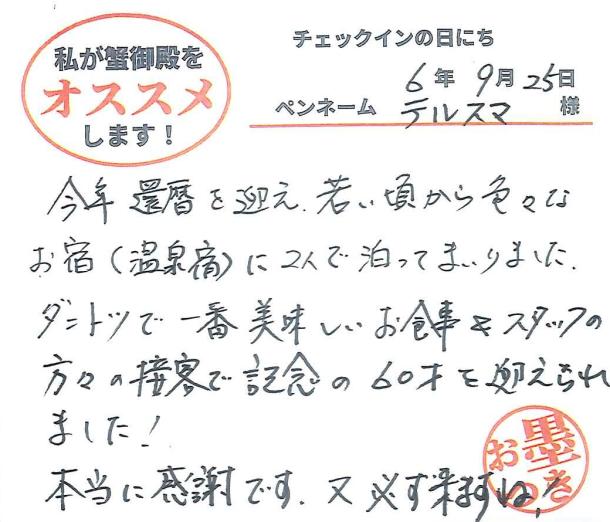 私が蟹御殿を
オススメ
します！
チェックインの日にち
6年9月25日
ペンネーム テルスマ 様
今年還暦を迎え、若い頃から色々な
お宿(温泉宿)に2人で泊ってまいりました.
ダントツで一番美味しいお食事&スタッフの
方々の接客で記念の60才を迎えられ
ました!
本当に感謝です. 又必ず来ますね,
お墨つき